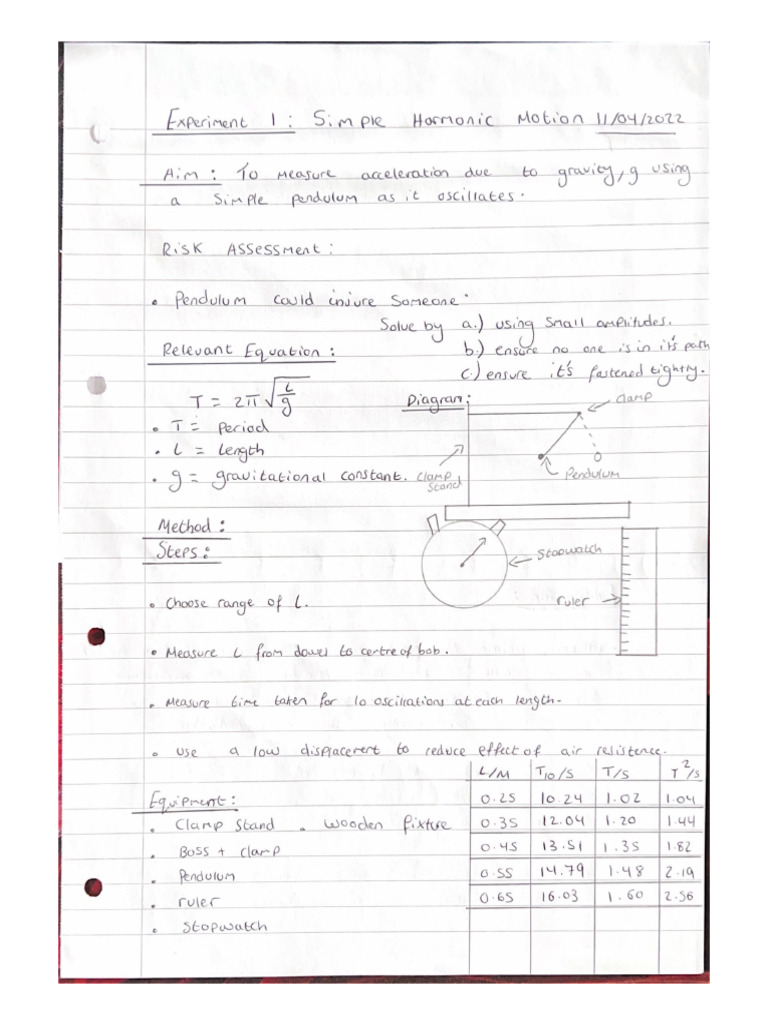 Experiment 1: Simple Harmonic Motion 11/04/2022
Aim: To measure acceleration due to gravity, g using
a simple pendulum as it oscillates.
Risk Assessment:
• Pendulum could injure someone.
Solve by a.) using small amplitudes.
b.) ensure no one is in it's path
c.) ensure it's fastened tightly.
Relevant Equation:
T = 2π√(L/g)
• T = Period
• L = Length
• g = gravitational constant.
Diagram:
Clamp
Clamp
Stand
Pendulum
Stopwatch
ruler
Method:
Steps:
• Choose range of L.
• Measure L from dowel to centre of bob.
• Measure time taken for 10 oscillations at each length.
• Use a low displacement to reduce effect of air resistence.
Equipment:
• Clamp Stand • Wooden fixture
• Boss + clamp
• Pendulum
• ruler
• Stopwatch
L/M T10/S T/S T²/S
0.25 10.24 1.02 1.04
0.35 12.04 1.20 1.44
0.45 13.51 1.35 1.82
0.55 14.79 1.48 2.19
0.65 16.03 1.60 2.56